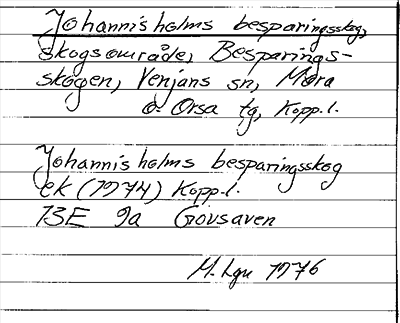 Johannisholms besparingsskog,
skogsområde, Besparings-
skogen, Venjans sn, Mora
o. Orsa tg, Kopp.l.
Johannisholms besparingsskog
ek (1974) Kopp.l.
13E 9a Gövsaven
M. Lgn 1976